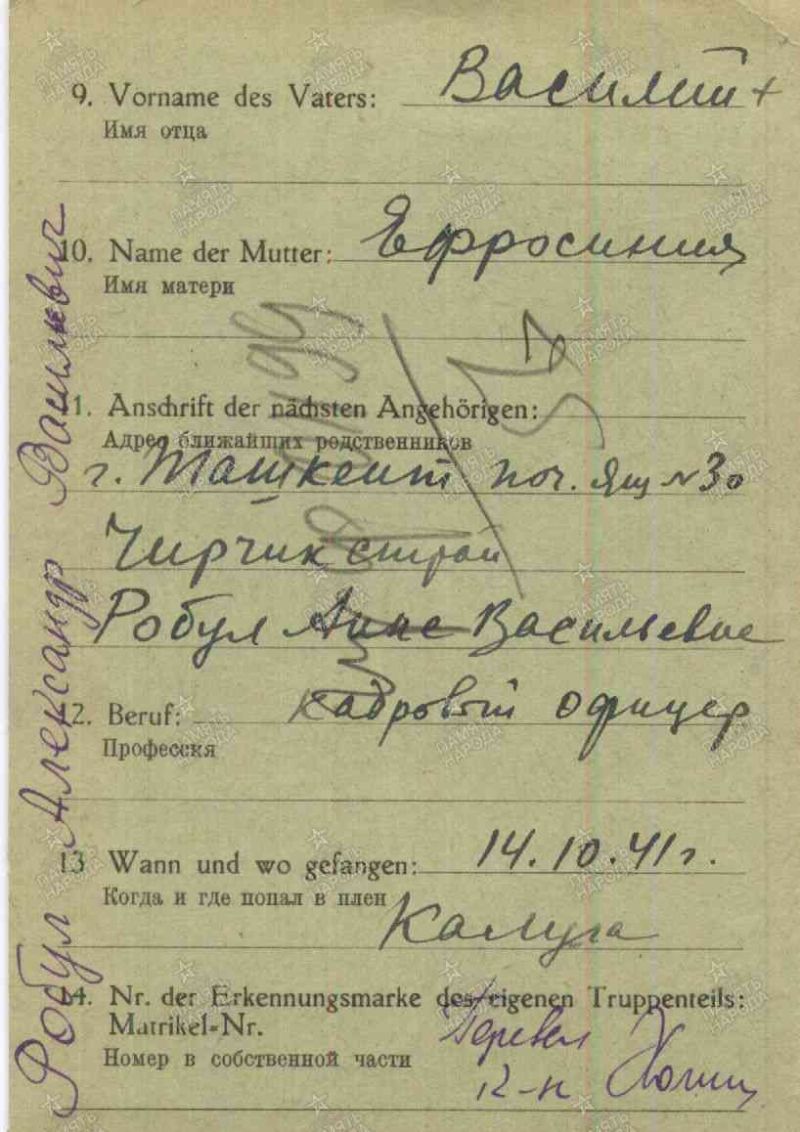 9. Vorname des Vaters: Василий +
Имя отца
10. Name der Mutter: Ефросиния
Имя матери
11. Anschrift der nächsten Angehörigen:
Адрес ближайших родственников
г. Ташкент поч. Ящ № 30
Чирчик строй
Робул Васильевне
12. Beruf: кадровый офицер
Профессия
13 Wann und wo gefangen: 14.10.41 г.
Когда и где попал в плен Калуга
14. Nr. der Erkennungsmarke des eigenen Truppenteils:
Matrikel-Nr.
Номер в собственной части
Перевел
12-н
Робул Александр Василиевич